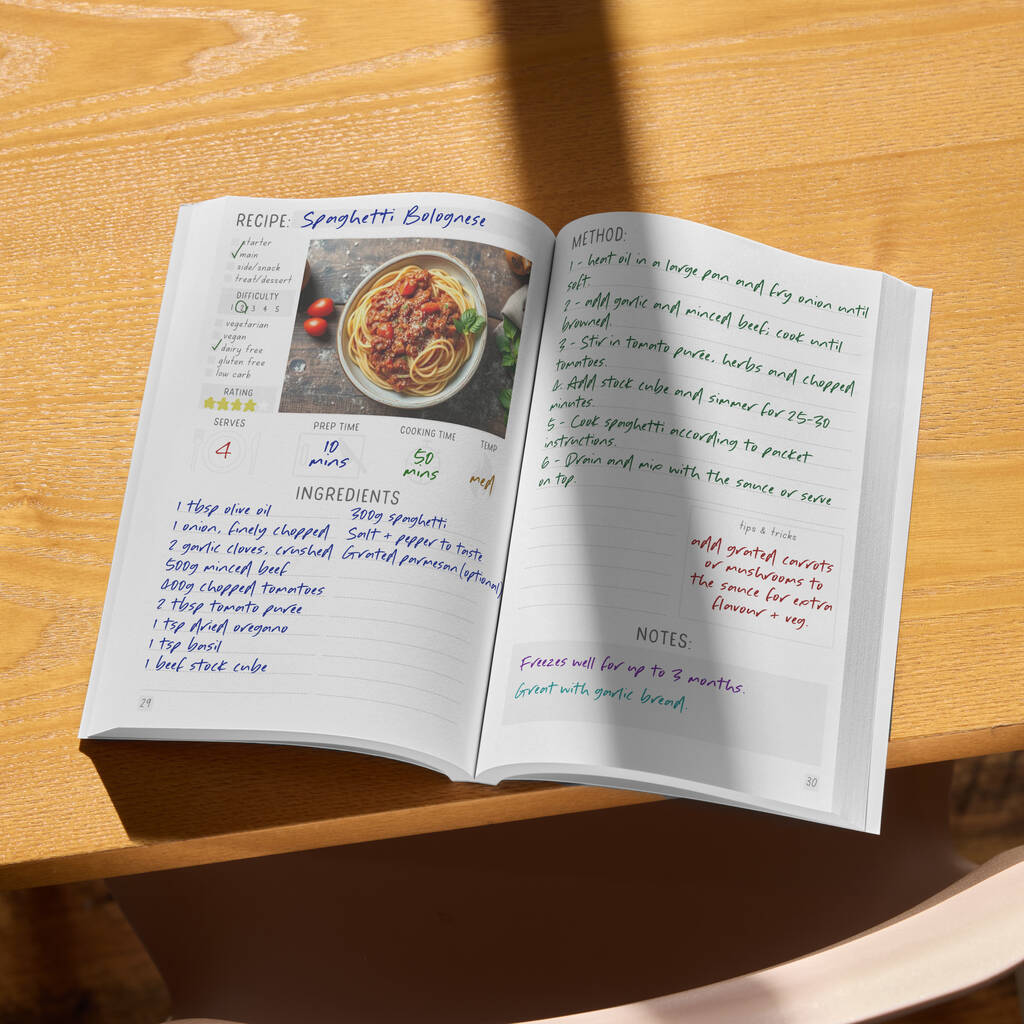 RECIPE: Spaghetti Bolognese
starter
main
side/snack
treat/dessert
DIFFICULTY
1 2 3 4 5
vegetarian
vegan
dairy free
gluten free
low carb
RATING
SERVES
4
PREP TIME
10
mins
COOKING TIME
50
mins
TEMP
med
INGREDIENTS
1 tbsp olive oil
1 onion, finely chopped
2 garlic cloves, crushed
500g minced beef
400g chopped tomatoes
2 tbsp tomato purée
1 tsp dried oregano
1 tsp basil
1 beef stock cube
300g spaghetti
Salt + pepper to taste
Grated parmesan (optional)
29
METHOD:
1 - heat oil in a large pan and fry onion until
soft.
2 - add garlic and minced beef; cook until
browned.
3 - Stir in tomato purée, herbs and chopped
tomatoes.
4. Add stock cube and simmer for 25-30
minutes.
5 - Cook spaghetti according to packet
instructions.
6 - Drain and mix with the sauce or serve
on top.
tips & tricks
add grated carrots
or mushrooms to
the sauce for extra
flavour + veg.
NOTES:
Freezes well for up to 3 months.
Great with garlic bread.
30